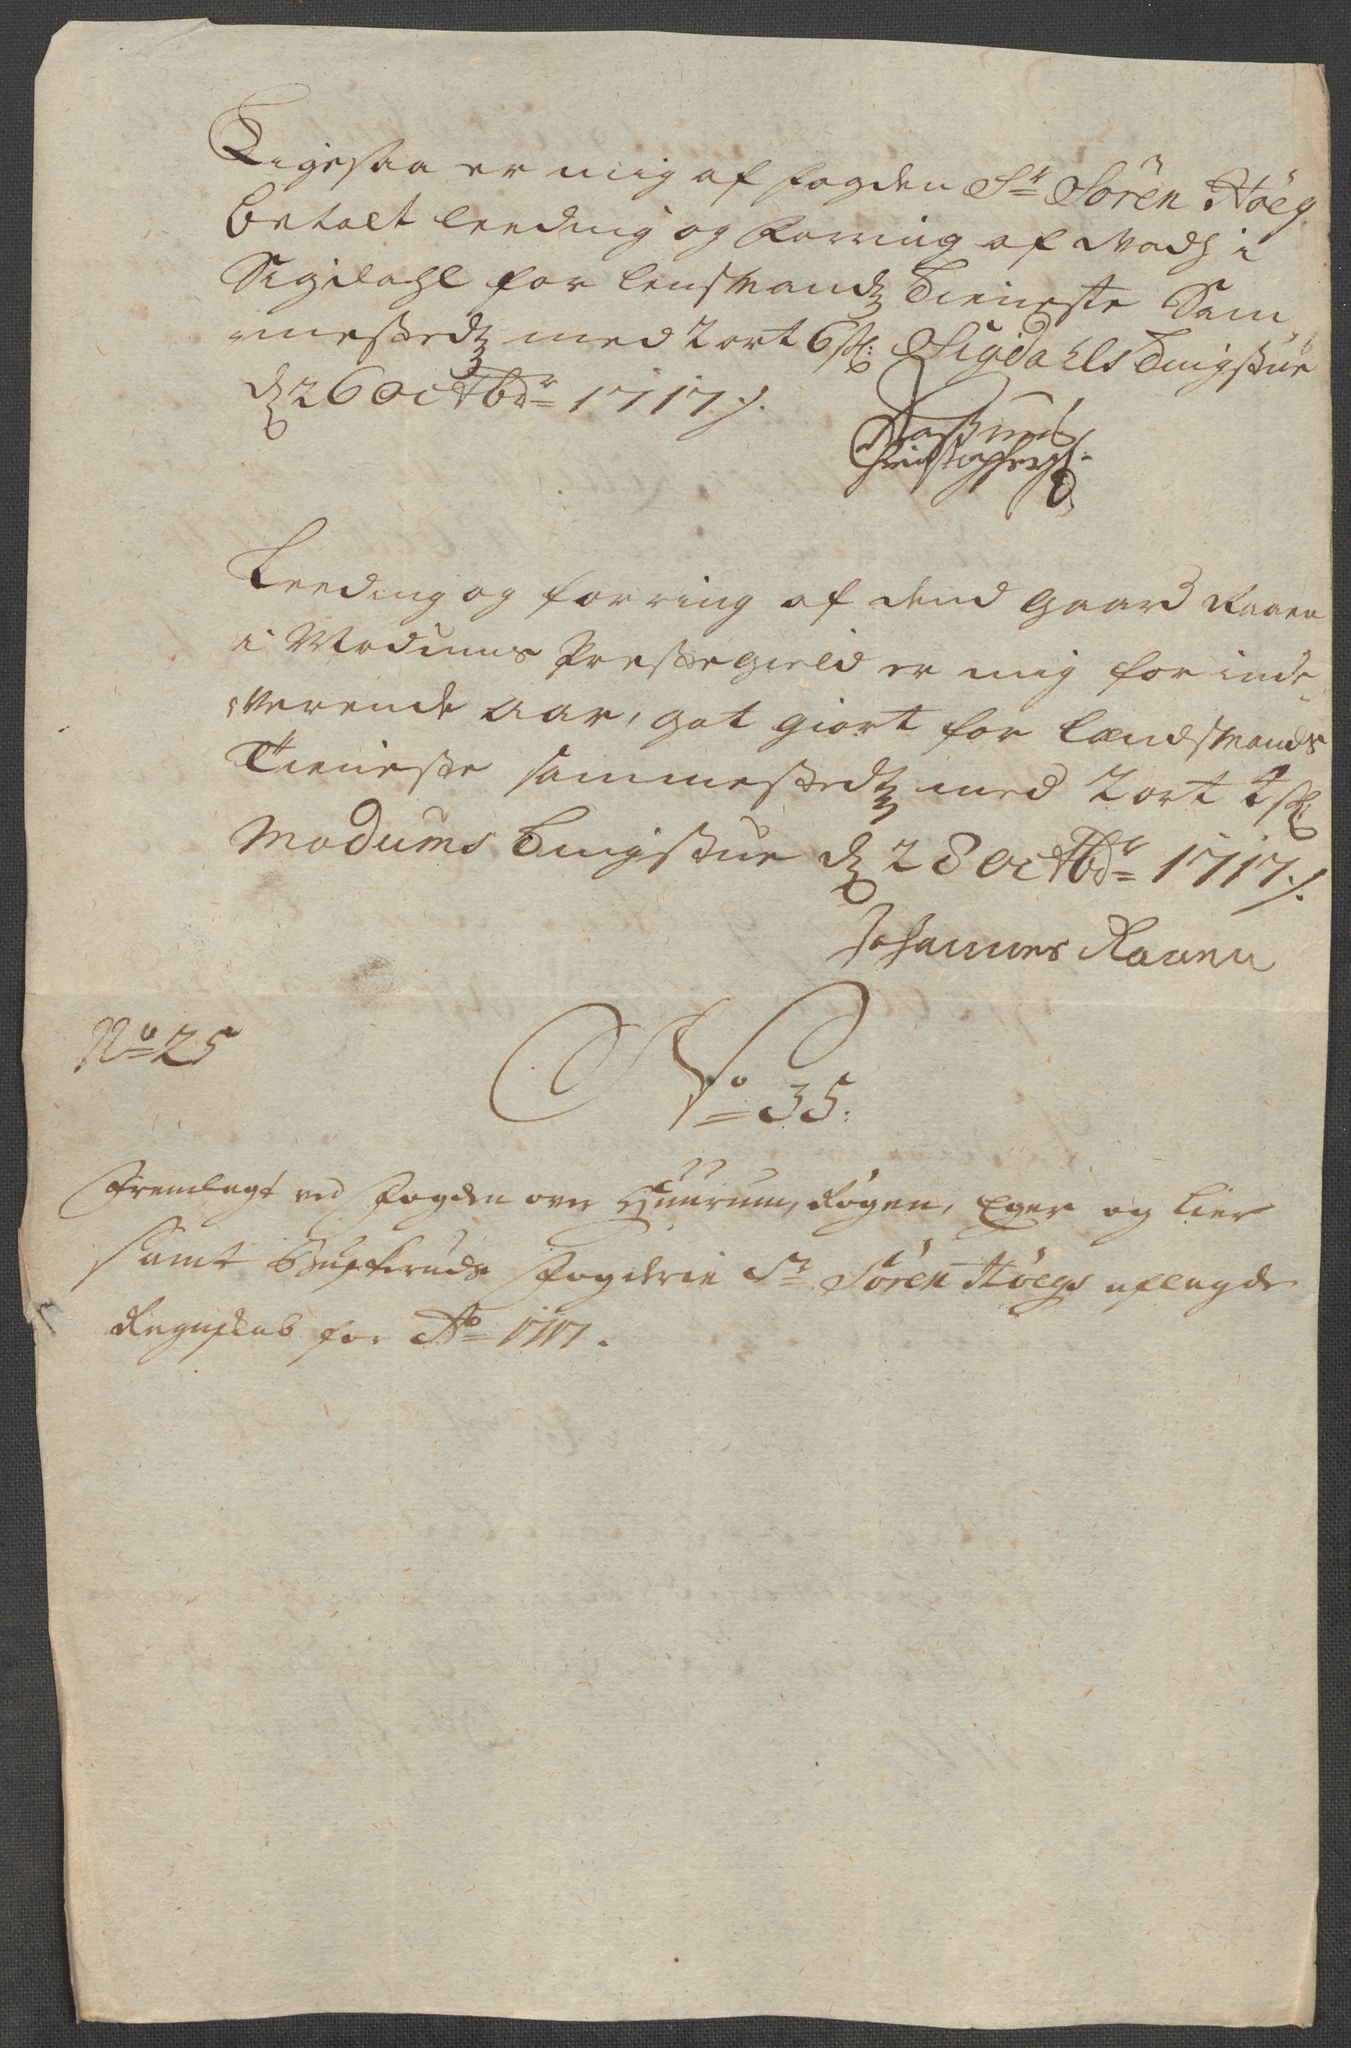 Ligesaa er mig af fogden Sr Sören Höeg
betalt leeding og Forring af Wadh i
Sigdahl for lensmandz Tieneste Sam¬
mestedz med 2 ort 6 sk: Sigdahls Tingstue
dz 26 Octbr 1717 ./.
Christophers:
Leeding og forring af dend gaard Raaen
i Modums Prestegield er mig for inde¬
werende aar, got giort for Lændsmands
Tieneste sammestedz med 2 ort sk
Modums Tingstue dz 28 Octbr 1717 ./.
Johannes Raaen
No 25
No 35:
Fremlagt ved Fogden over Huurum, Røgen, Eger og Lier
samt Buskeruds Fogderie Sr Søren Höegs aflagde
Regnskab for Ao 1717.